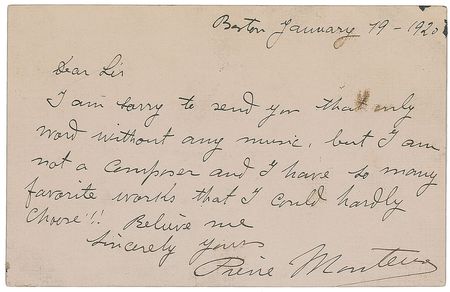 Boston January 19-1920
Dear Sir
I am sorry to send you that only
word without any music, but I am
not a composer and I have so many
favorite works that I could hardly
choose!!! Believe me
sincerely yours
Pierre Monteux